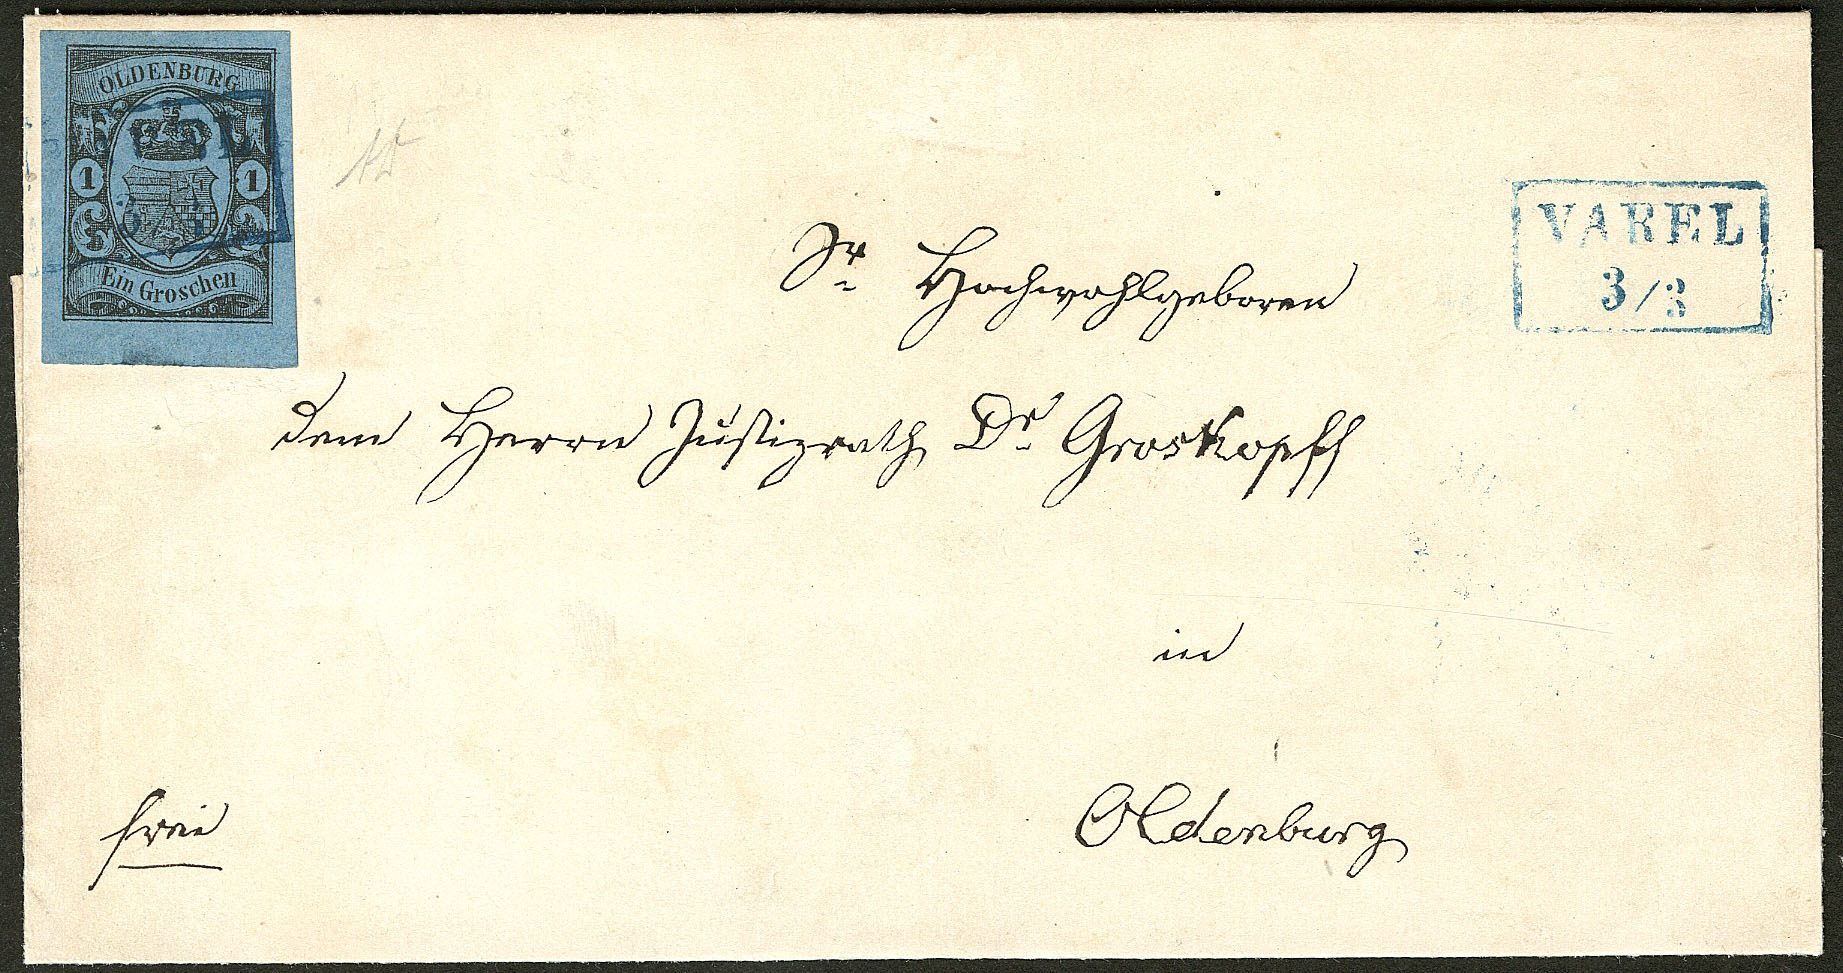 OLDENBURG
1 1
Ein Groschen
VAREL
3/3
Sr. Hochwohlgeboren
dem Herrn Justizrath Dr. Groskopff
in
Oldenburg
frei